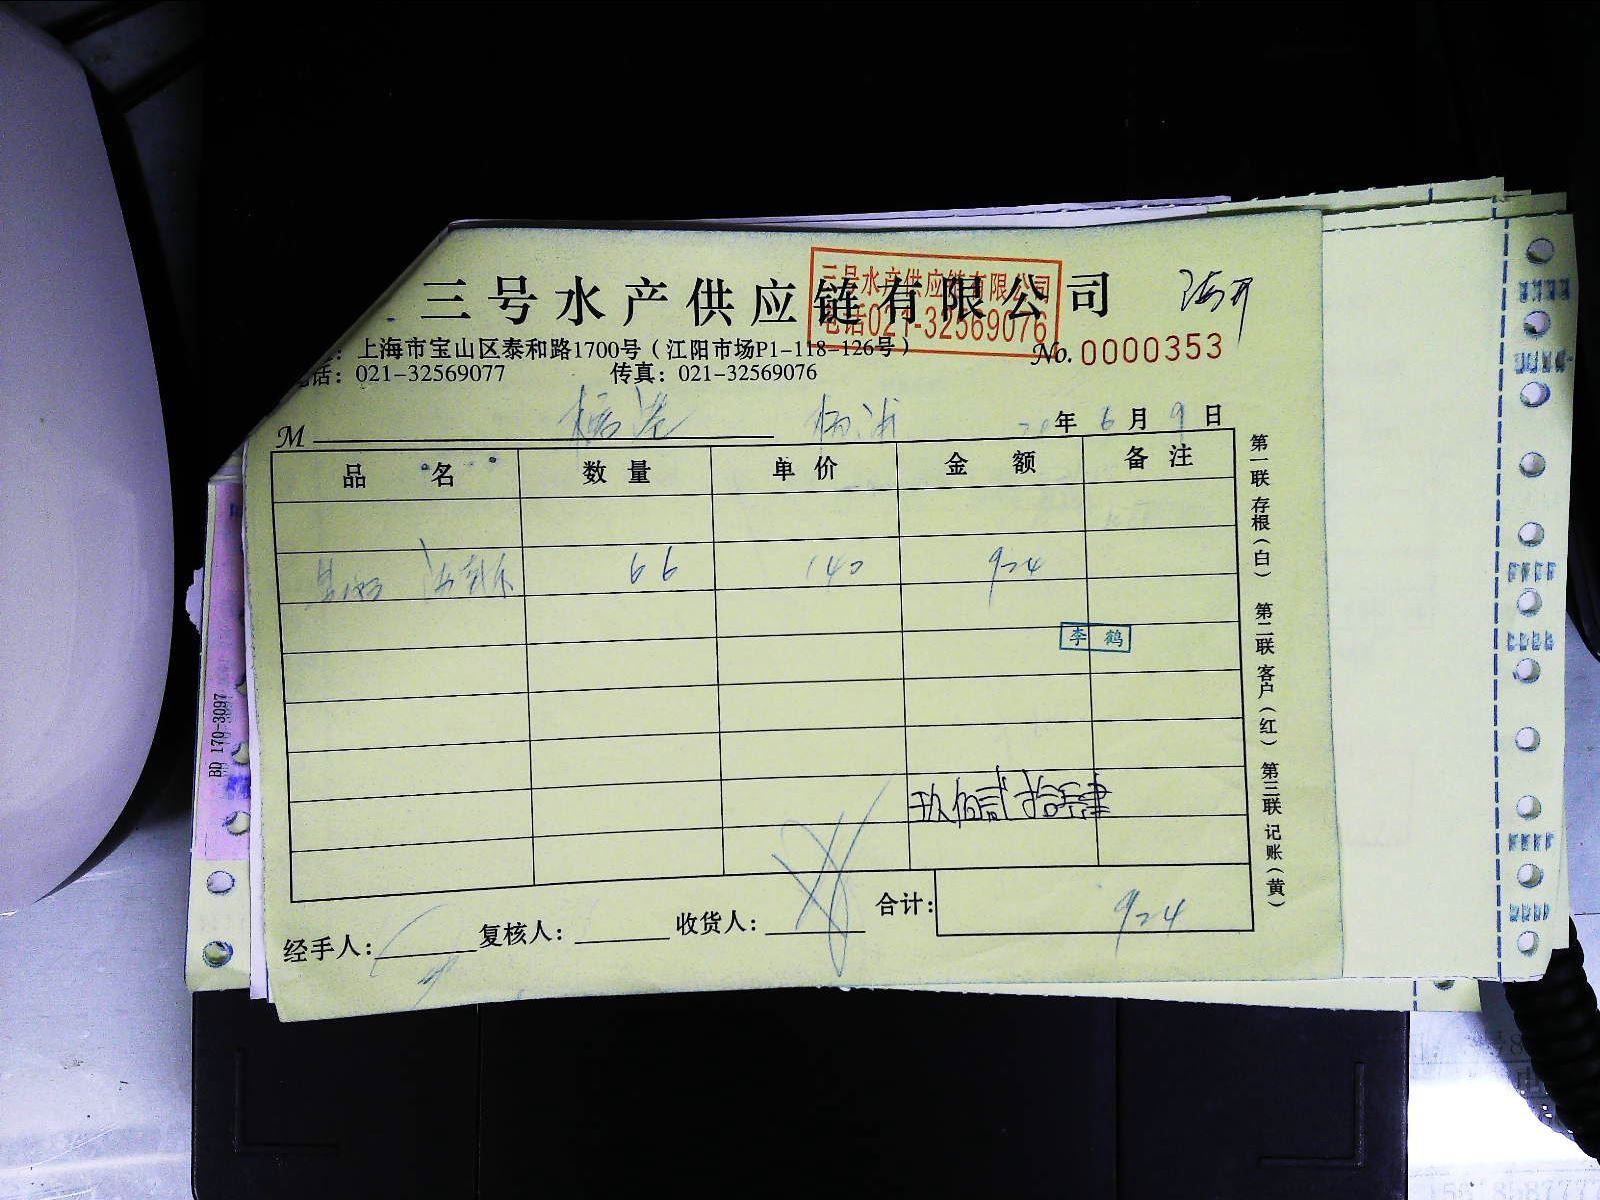 三号水产供应链有限公司
三号水产供应链有限公司
电话021-32569076
上海市宝山区泰和路1700号（江阳市场P1-118-126号）
No. 0000353
话：021-32569077 传真：021-32569076
M 年 6 月 9 日
品 名 数 量 单 价 金 额 备 注
66 140 924
李 鹤
玖佰贰拾肆
合计: 924
经手人: 复核人: 收货人:
第一联 存根（白） 第二联 客户（红） 第三联 记账（黄）
BD 170-3097